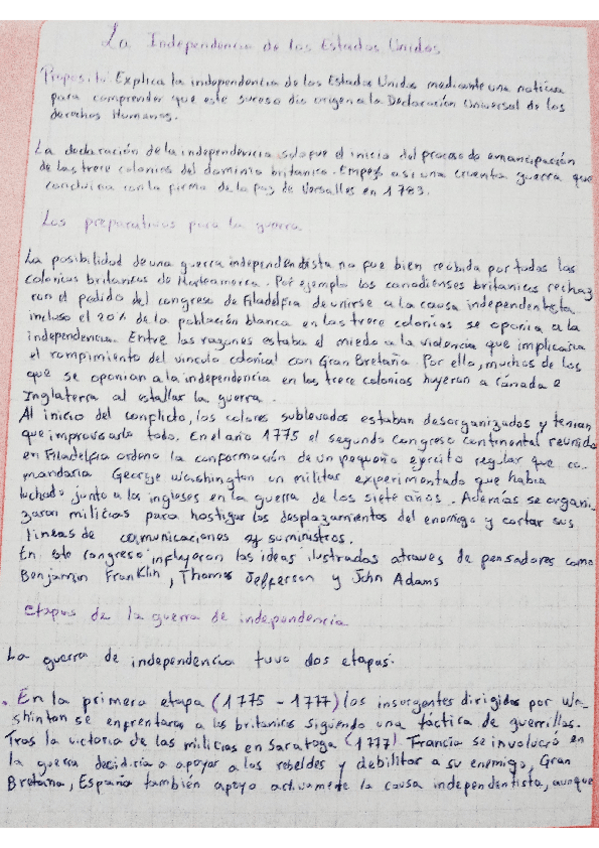 La Independencia de los Estados Unidos
Proposito: Explica la independencia de los Estados Unidos mediante una noticia
para comprender que este suceso dio origen a la Declaración Universal de los
derechos Humanos.
La declaración de la independencia solo fue el inicio del proceso de emancipación
de las trece colonias del dominio britanico. Empezó asi una cruenta guerra que
concluiria con la firma de la paz de Versalles en 1783.
Los preparativos para la guerra
La posibilidad de una guerra independentista no fue bien recibida por todas las
colonias britanicas de Norteamerica. Por ejemplo los canadienses britanicos rechaz
ron el pedido del congreso de Filadelfia de unirse a la causa independentista
incluso el 20% de la población blanca en las trece colonias se oponia a la
independencia. Entre las razones estaba el miedo a la violencia que implicaria
el rompimiento del vinculo colonial con Gran Bretaña. Por ello, muchos de los
que se oponian a la independencia en las trece colonias huyeron a Canada e
Inglaterra al estallar la guerra.
Al inicio del conflicto, los colonos sublevados estaban desorganizados y tenian
que improvisarlo todo. En el año 1775 el segundo congreso continental reunido
en Filadelfia ordeno la conformación de un pequeño ejercito regular que co-
mandaria George Washington un militar experimentado que habia
luchado junto a la ingleses en la guerra de los siete años. Además se organi-
zaron milicias para hostigar los desplazamientos del enemigo y cortar sus
lineas de comunicaciones y suministros.
En este congreso influyeron las ideas ilustradas atraves de pensadores como
Benjamin Franklin, Thomas Jefferson y John Adams
etapas de la guerra de independencia
La guerra de independencia tuvo dos etapas:
• En la primera etapa (1775 - 1777) los insurgentes dirigidos por Wa-
shinton se enfrentaron a los britanicos siguiendo una táctica de guerrillas.
Tras la victoria de las milicias en Saratoga (1777) Francia se involucró en
la guerra decidida a apoyar a los rebeldes y debilitar a su enemigo, Gran
Bretaña, España también apoyo activamente la causa independentista, aunque